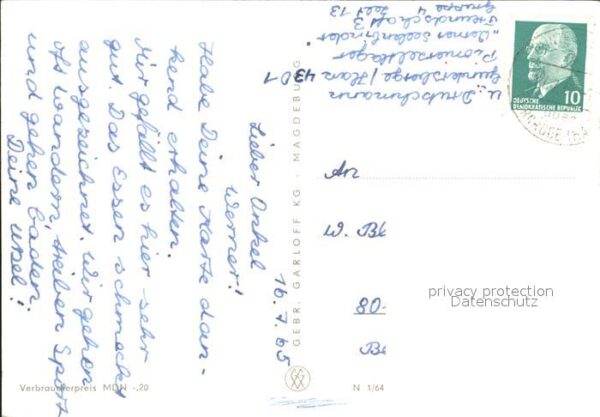 16.7.65
Lieber Onkel
Werner!
Habe Deine Karte dan-
kend erhalten.
Mir gefällt es hier sehr
gut. Das Essen schmeckt
ausgezeichnet. Wir gehen
oft wandern, treiben Sport
und gehen baden.
Deine Ursel!
U. Deutschmann
4301
Güntersberge / Harz
Pionierzeltlager
Freundschaft 3
Gruppe 4
Zelt 13
DEUTSCHE
DEMOKRATISCHE REPUBLIK
10
An
W. Bl
80-
Be
privacy protection
Datenschutz
GEBR. GARLOFF KG · MAGDEBURG
Verbraucherpreis MDN -,20
N 1/64